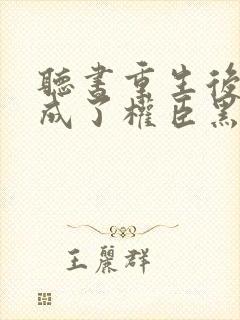 聽書重生後
成了權臣黑
王麗群